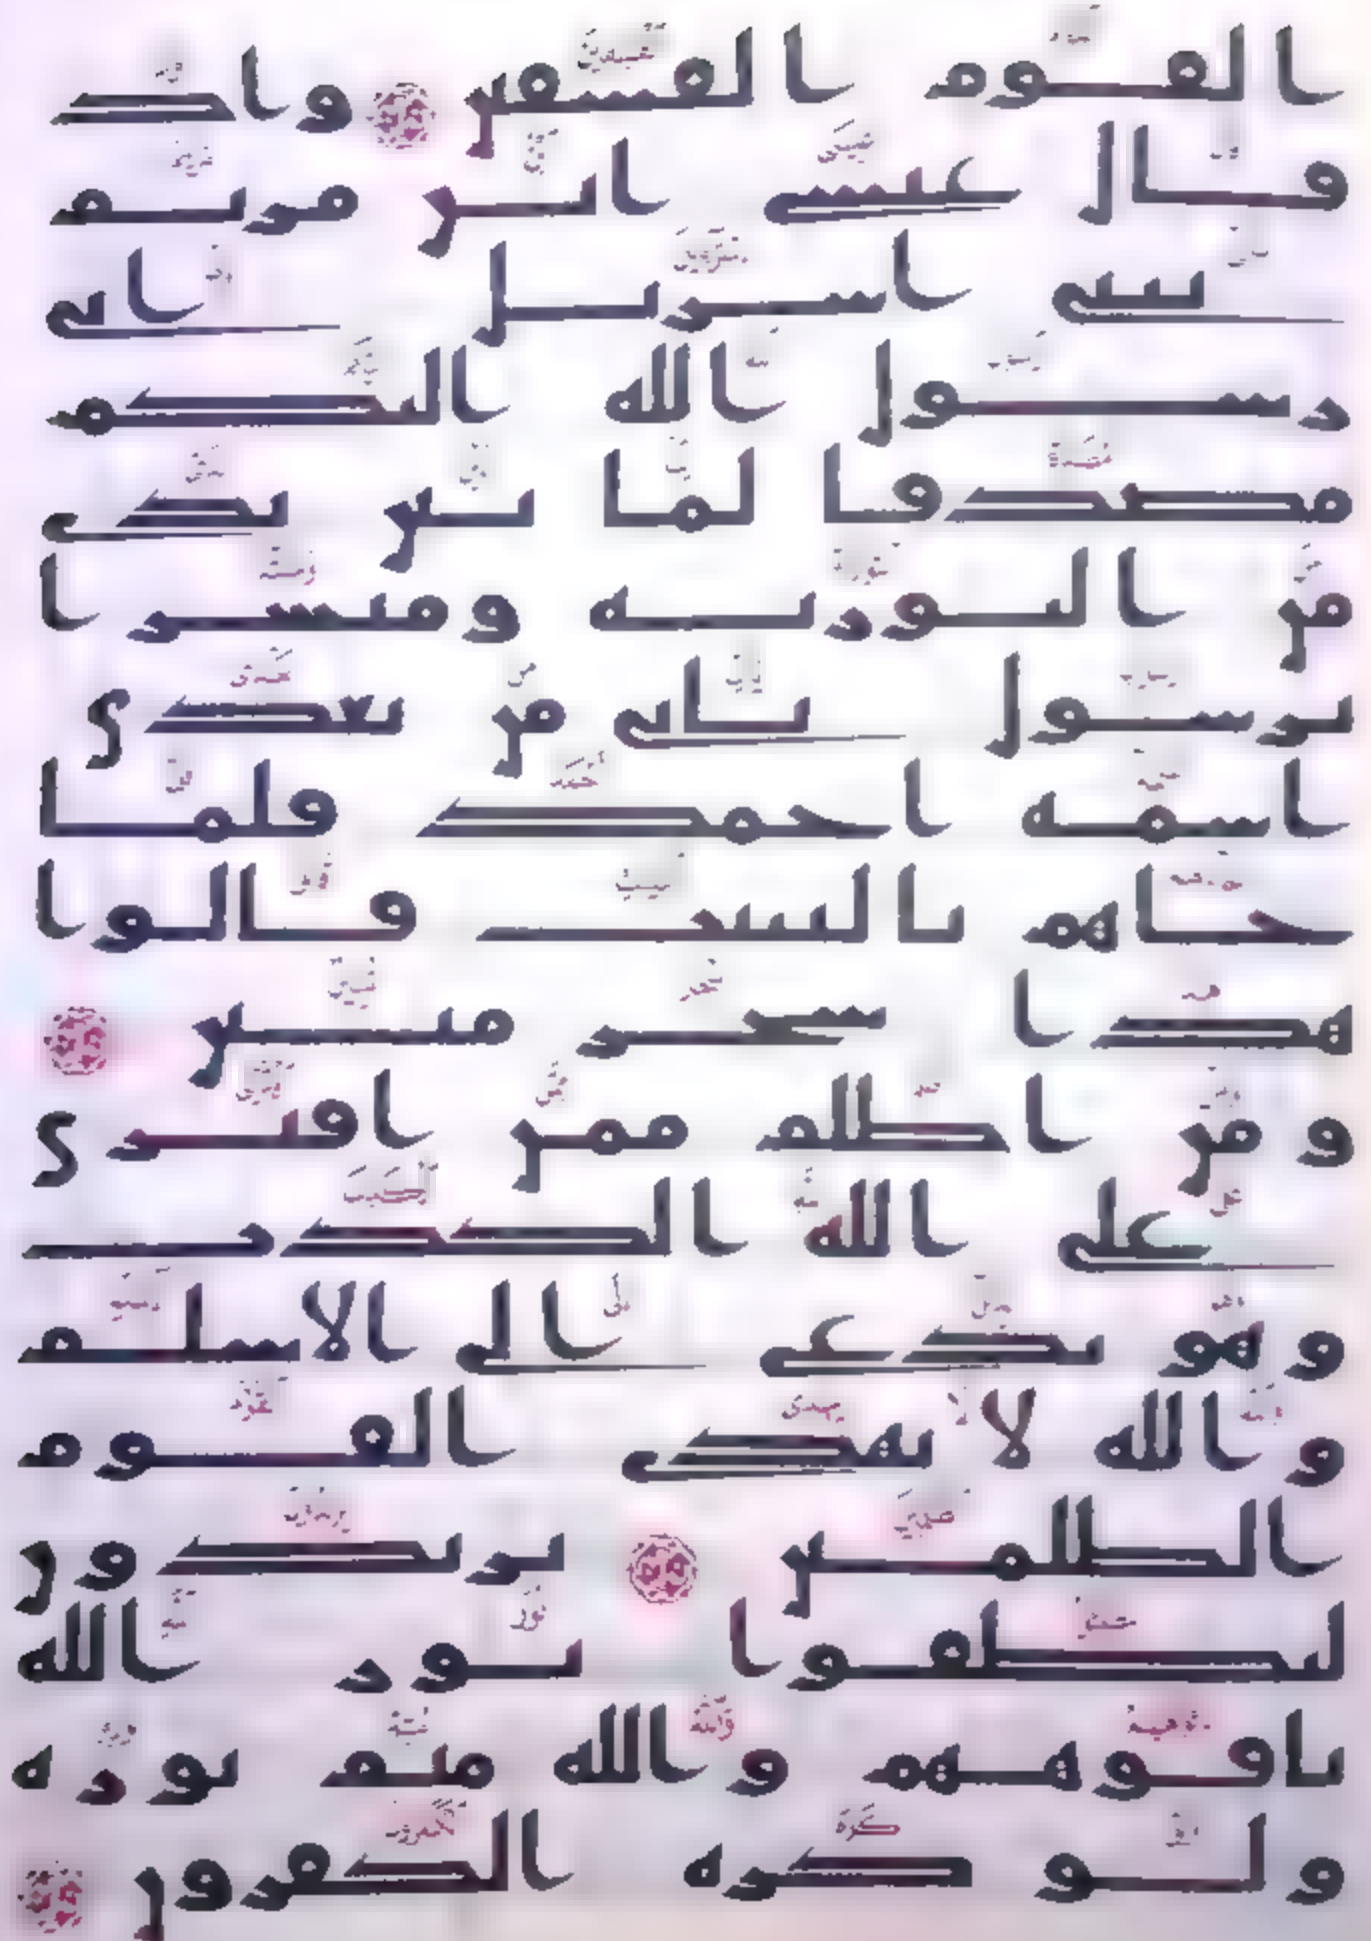 القوم الفسقين واذ
قال عيسى ابن مريم
يبني اسريل اني
رسول الله اليكم
مصدقا لما بين يدي
من التوريه ومبشرا
برسول ياتي من بعدي
اسمه احمد فلما
جاهم بالبينت قالوا
هذا سحر مبين
ومن اظلم ممن افترى
على الله الكذب
وهو يدعى الى الاسلم
والله لا يهدي القوم
الظلمين يريدون
ليطفوا نور الله
بافوههم والله متم نوره
ولو كره الكفرون